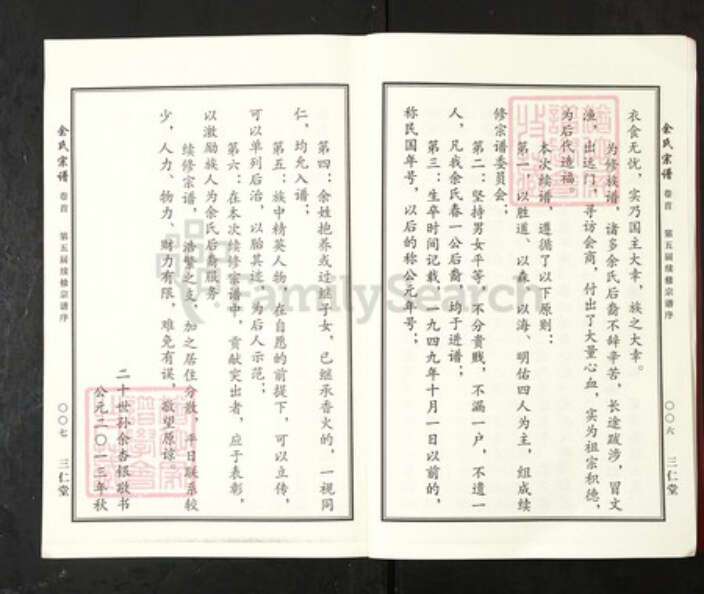 衣食无忧，实乃国主大幸，族之大幸。
为修族谱，诸多余氏后裔不辞辛苦，长途跋涉，冒文
渔，出远门，寻访会商，付出了大量心血，实为祖宗积德，
为后代造福。
本次续谱，遵循了以下原则：
第一：以胜道、以森、以海、明佑四人为主，组成续
修宗谱委员会；
第二：坚持男女平等，不分贵贱，不漏一户，不遗一
人，凡我余氏春一公后裔，均于进谱；
第三：生卒时间记载，一九四九年十月一日以前的，
称民国年号，以后的称公元年号；
余氏宗谱 卷首 第五届续修宗谱序 〇〇六 三仁堂
第四：余姓抱养或过继子女，已继承香火的，一视同
仁，均允入谱；
第五：族中精英人物，在自愿的前提下，可以立传，
可以单列后治，以胎其述，为后人示范；
第六：在本次续修宗谱中，贡献突出者，应于表彰，
以激励族人为余氏后裔服务
续修宗谱，浩繁之支，加之居住分散，平日联系较
少，人力、物力、财力有限，难免有误，敬望原谅。
二十世孙余杏银敬书
公元二〇一三年秋
余氏宗谱 卷首 第五届续修宗谱序 〇〇七 三仁堂
FamilySearch